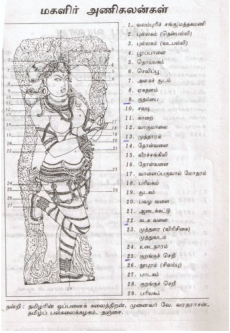 மகளிர் அணிகலன்கள்
1. வலம்புரிச் சங்கு/மத்தவணி
2. புல்லகம் (தென்பல்லி)
3. புல்லகம் (வடபல்லி)
4. பூரப்பாளை
5. தொய்யகம்
6. செவிப்பூ
7. அளகச் சூடகம்
8. ஏகதளம்
9. குதம்பை
10. சவடி
11. காறை
12. வாகுமாலை
13. முத்தாரம்
14. தோள்வளை
15. வீரச்சங்கிலி
16. தோள்வளை
18. பரியகம்
19. சூடகம்
20. பவழ வளை
21. ஆடைக்கட்டு
22. கடக வளை
23. முத்தரை (விரிசிகை)
24. உடைதாரம்
25. குறங்குச் செறி
26. நூபுரம் (சிலம்பு)
27. பாடகம்
28. குறங்குச் செறி
29. பரியகம்
நன்றி : தமிழரின் ஒப்பனைக் கலைத்திறன், முனைவர் வே. வரதராசன்,
தமிழ்ப் பல்கலைக்கழகம், தஞ்சை.